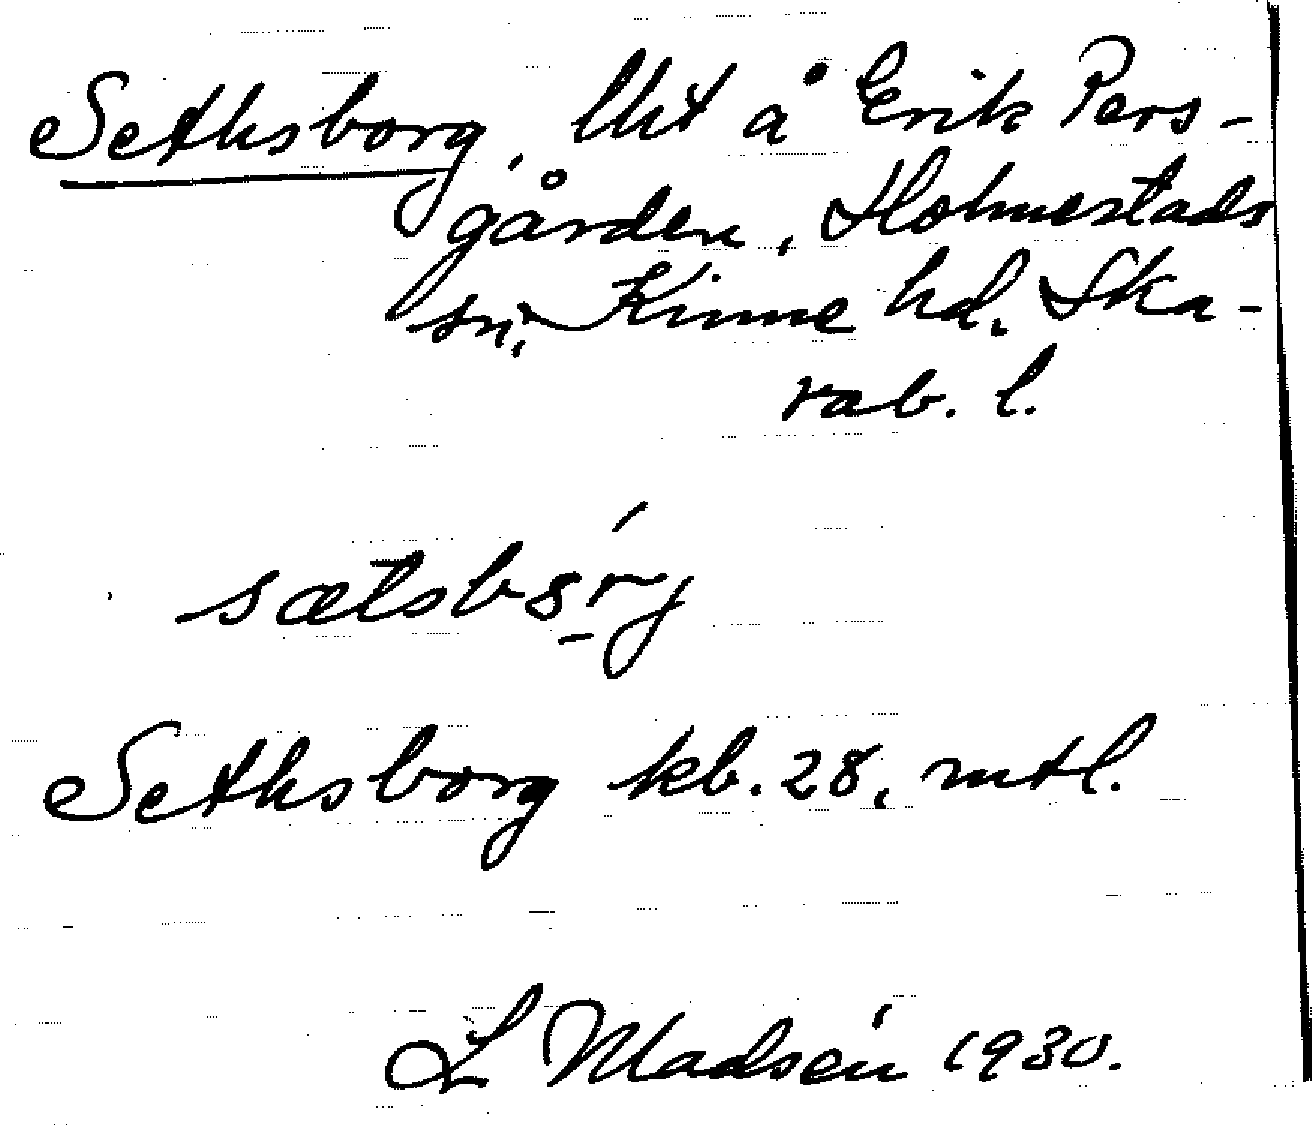 Sethsborg, lht å Erik Pers-
gården, Holmestads
sn, Kinne hd. Ska-
rab. l.
sætsbo̱rj
Sethsborg kb. 28, mtl.
L Madsén 1930.